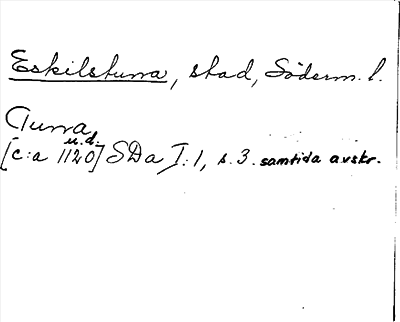 Eskilstuna, stad, Söderm. l.
Tuna
u.d.
[c:a 1120] SDa I:1, s. 3. samtida avskr.